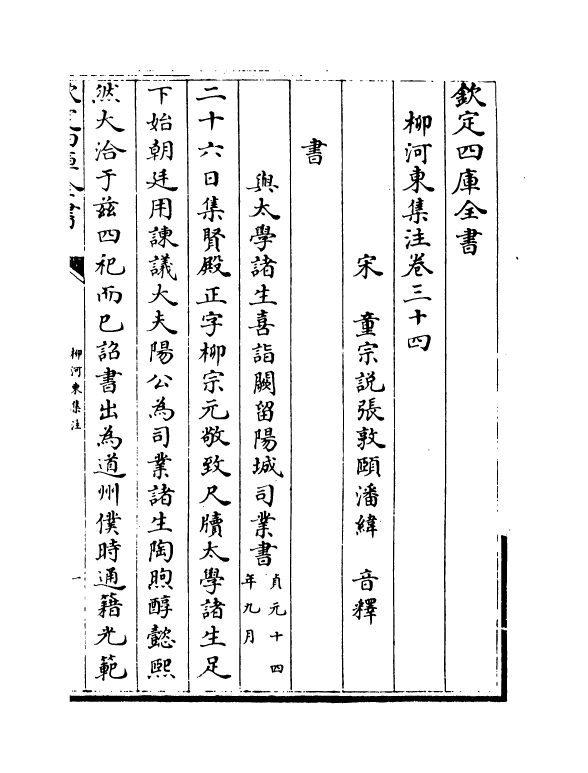 欽定四庫全書
柳河東集注卷三十四
宋 童宗說張敦頤潘緯 音釋
書
與太學諸生喜詣闕留陽城司業書貞元十四年九月
二十六日集賢殿正字柳宗元敬致尺牘太學諸生足
下始朝廷用諫議大夫陽公為司業諸生陶煦醇懿熙
然大洽于茲四祀而已詔書出為道州僕時通籍光範
欽定四庫全書
柳河東集注
一